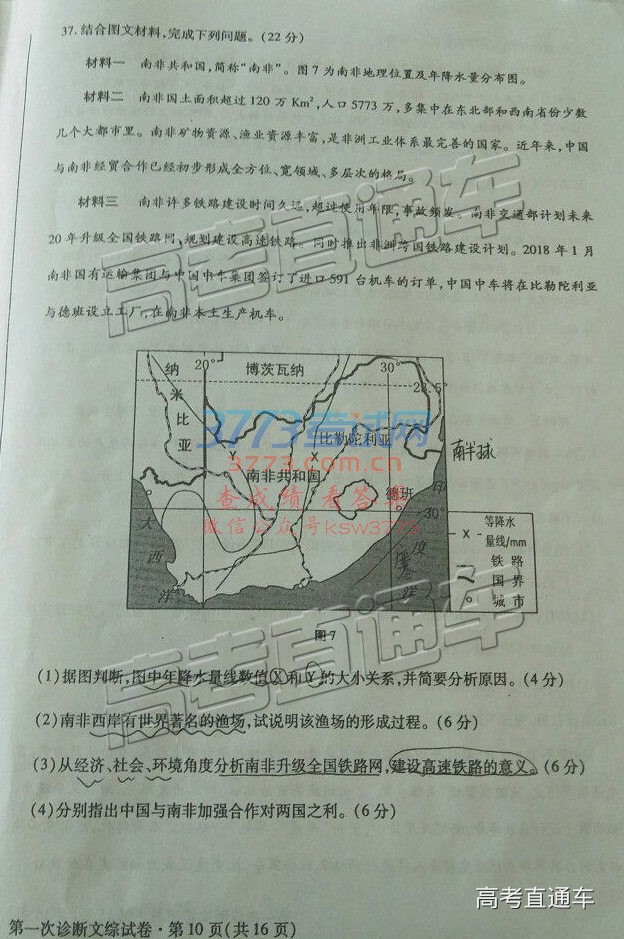 37.结合图文材料,完成下列问题。(22分)
材料一 南非共和国,简称“南非”。图7为南非地理位置及年降水量分布图。
材料二 南非国土面积超过120万Km²,人口5773万,多集中在东北部和西南省份少数
几个大都市里。南非矿物资源、渔业资源丰富,是非洲工业体系最完善的国家。近年来,中国
与南非经贸合作已经初步形成全方位、宽领域、多层次的格局。
材料三 南非许多铁路建设时间久远,超过使用年限,事故频发。南非交通部计划未来
20年升级全国铁路网,规划建设高速铁路。同时推出非洲跨国铁路建设计划。2018年1月
南非国有运输集团与中国中车集团签订了进口591台机车的订单,中国中车将在比勒陀利亚
与德班设立工厂,在南非本土生产机车。
高考直通车
纳米比亚
20°
博茨瓦纳
30°
23.5°
3773考试网
Y
X
比勒陀利亚
南半球
3773.com.cn
南非共和国
查成绩 看答案
德班
印度洋
微信公众号ksw3773
30°
大西洋
寒
- X - 等降水量线/mm
铁路
国界
城市
图7
高考直通车
(1)据图判断,图中年降水量线数值X和Y的大小关系,并简要分析原因。(4分)
(2)南非西岸有世界著名的渔场,试说明该渔场的形成过程。(6分)
(3)从经济、社会、环境角度分析南非升级全国铁路网,建设高速铁路的意义。(6分)
(4)分别指出中国与南非加强合作对两国之利。(6分)
高考直通车
第一次诊断文综试卷·第10页(共16页)